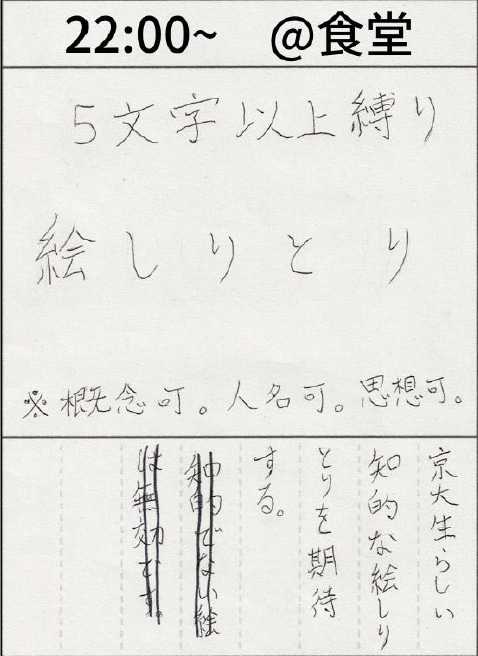 22:00~　@食堂
5文字以上縛り
絵しりとり
※概念可。人名可。思想可。
京大生らしい
知的な絵しり
とりを期待
する。
知的でない絵
は無効です。